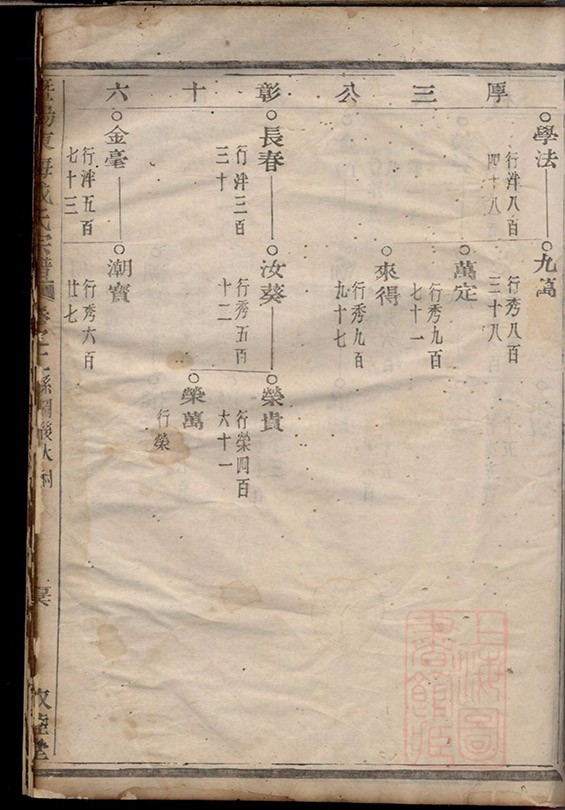 厚三公彰十六
學法
行泮八百
四十八
九萬
行秀八百
三十八
萬定
行秀九百
七十一
來得
行秀九百
九十七
長春
行泮三百
三十
汝葵
行秀五百
十二
榮貴
行榮四百
六十一
榮萬
行榮
金毫
行泮五百
七十三
潮寶
行秀六百
廿七
東海
氏宗譜
系圖後大
上海圖書館